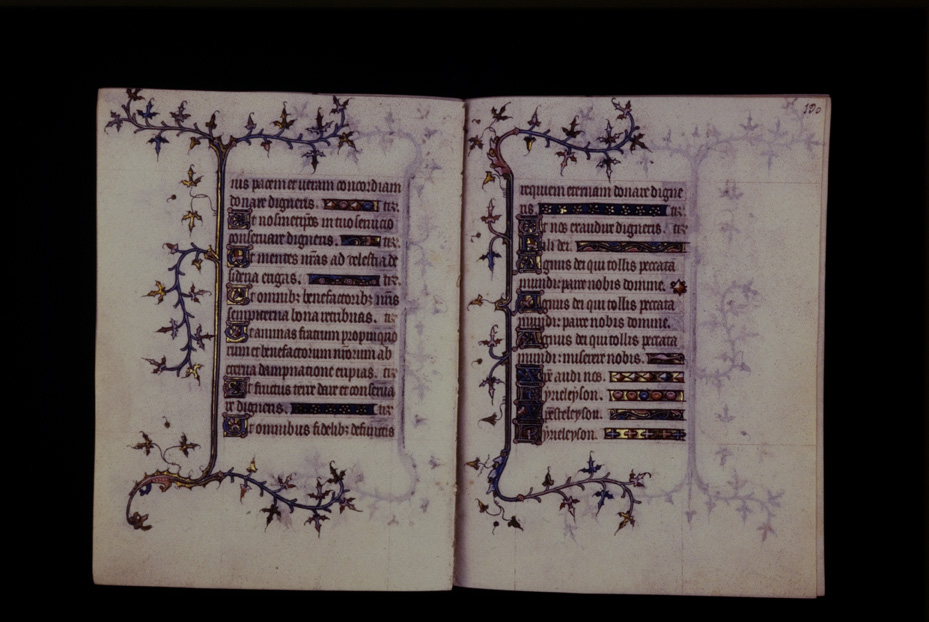 nis pacem et ueram concordiam
donare digneris. te r̄.
Et nosmetip̄os in tuo seruicio
conseruare digneris. te r̄.
Et mentes nr̄as ad celestia de
sideria erigas. te r̄.
Et omnibꝫ benefactoribꝫ nr̄is
sempiterna bona retribuas. te r̄.
Et animas fratrum propinquo
rum et benefactorum nr̄orum ab
eterna dampnatione eripias. te r̄.
Et fructus terre dare et conserua
re digneris. te r̄.
Et omnibus fidelibꝫ defunctis
100
requiem eternam donare digne
ris. te r̄.
Et nos exaudire digneris. te r̄.
Fili dei.
Agnus dei qui tollis peccata
mundi: parce nobis domine.
Agnus dei qui tollis peccata
mundi: parce nobis domine.
Agnus dei qui tollis peccata
mundi: miserere nobis.
Xp̄e audi nos.
Kyrieleyson.
Xp̄eeleyson.
Kyrieleyson.